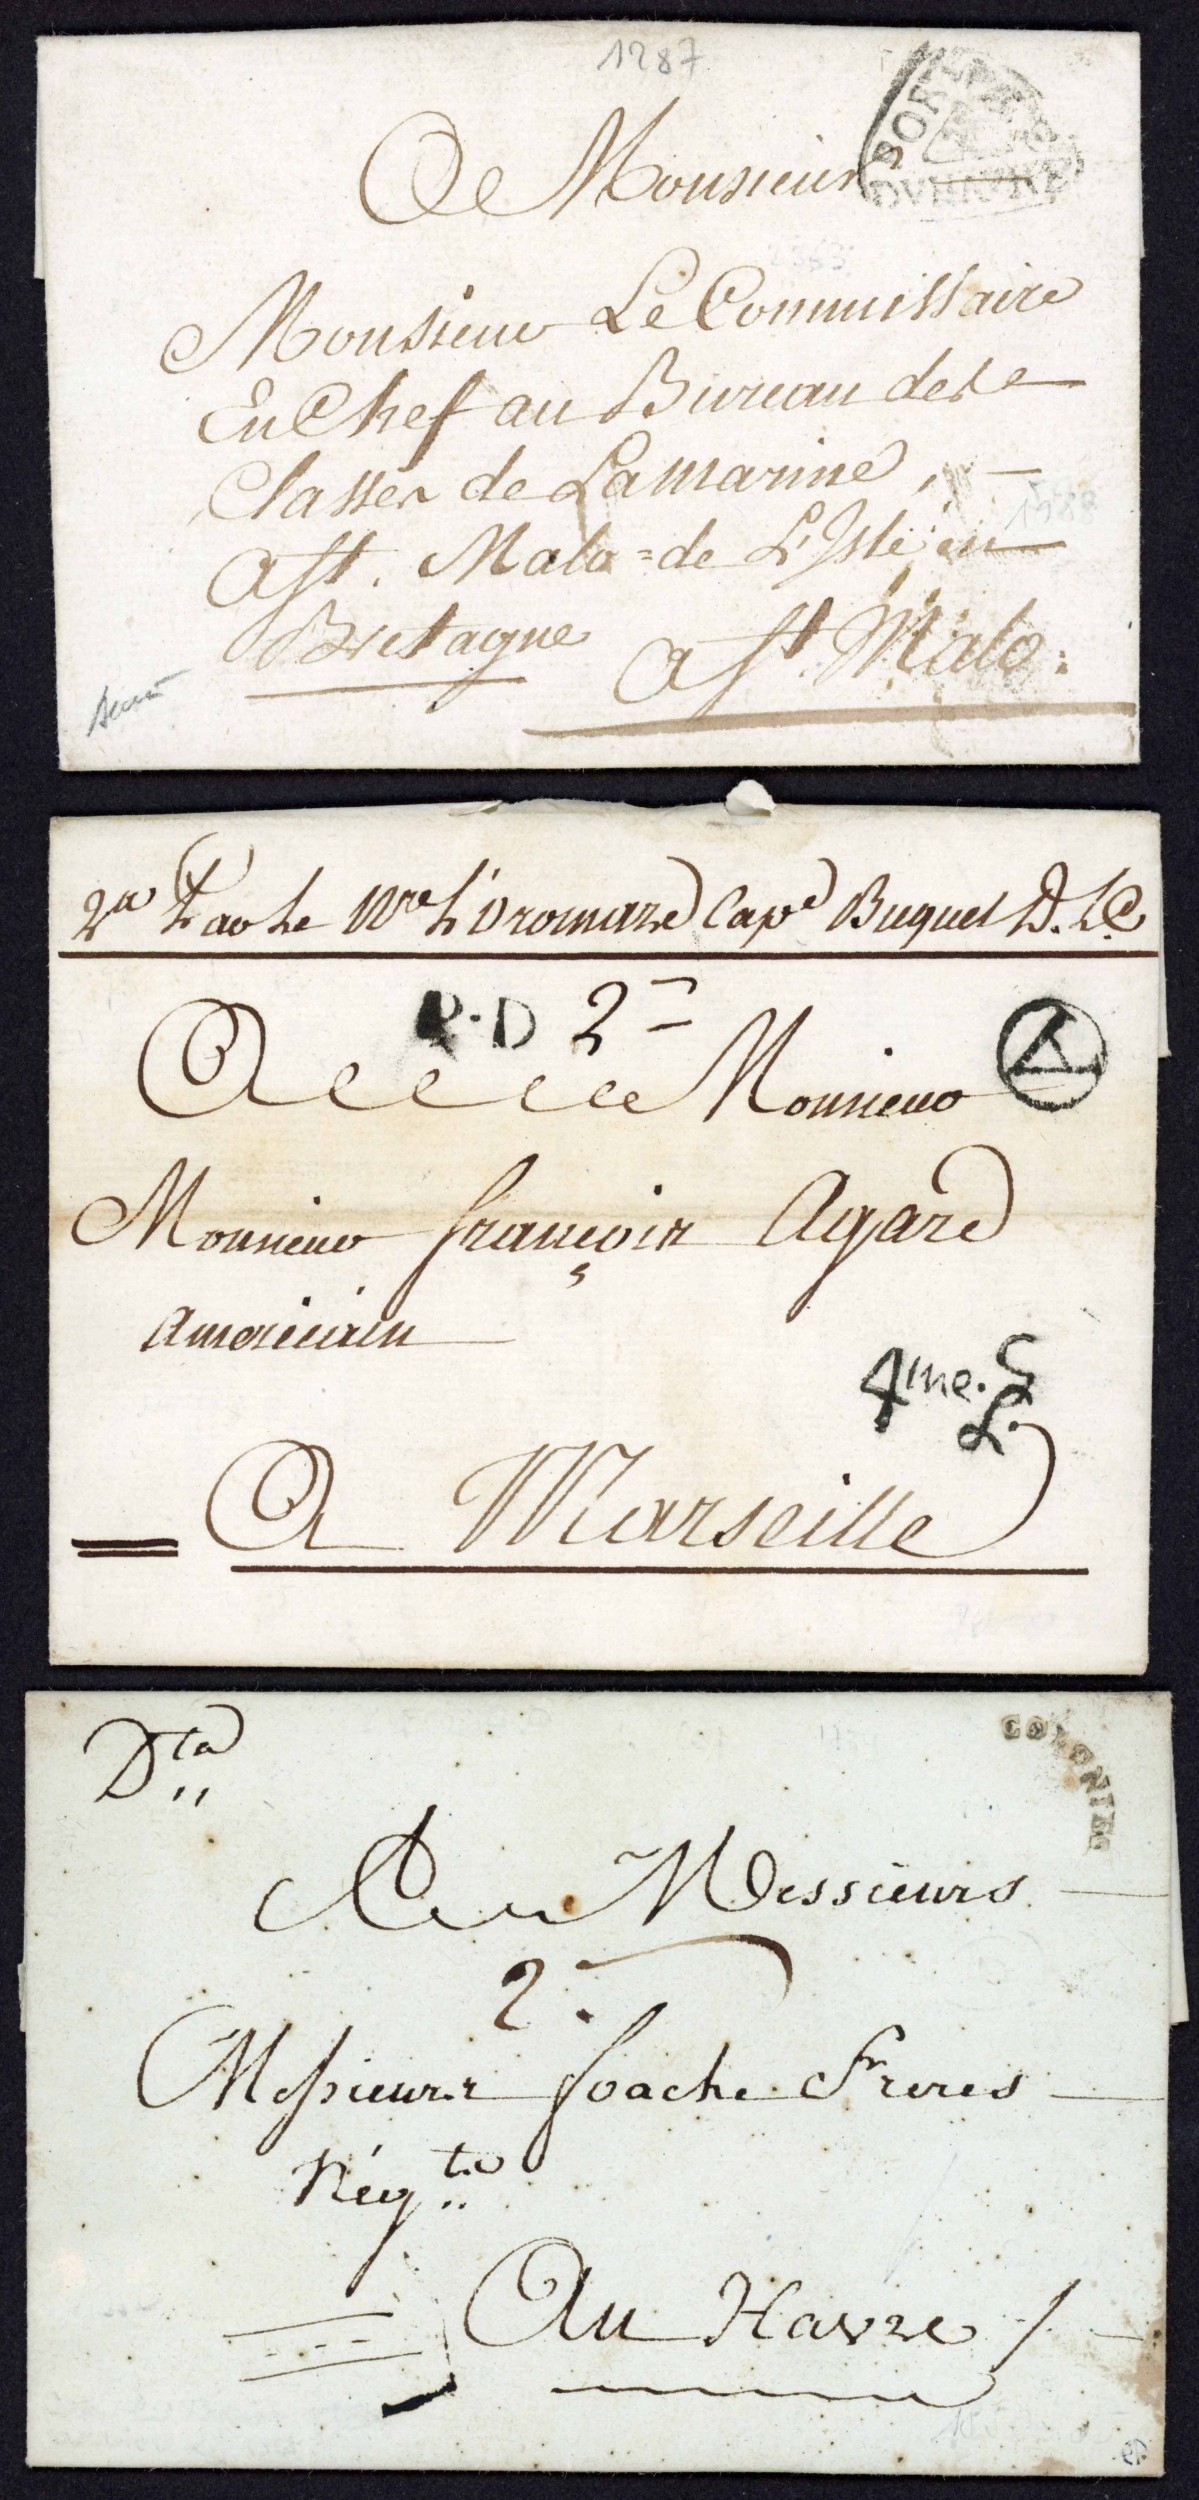 1287
PORT PAYÉ
DU HAVRE
A Monsieur
Monsieur Le Commissaire
En Chef au Bureau des
Classes de La marine,
A St. Malo = de L'Isle en
Bretagne
A St. Malo :
2a Par Le Nre L'Dromare Cape Buquet D. L. C.
R·D 2
A Monsieur
A
Monsieur françois Agard
americain
4me. G
L.
A Marseille
Dta
COLONIES
A Messieurs
2
Messieurs foache Freres
Négts
Au Havre